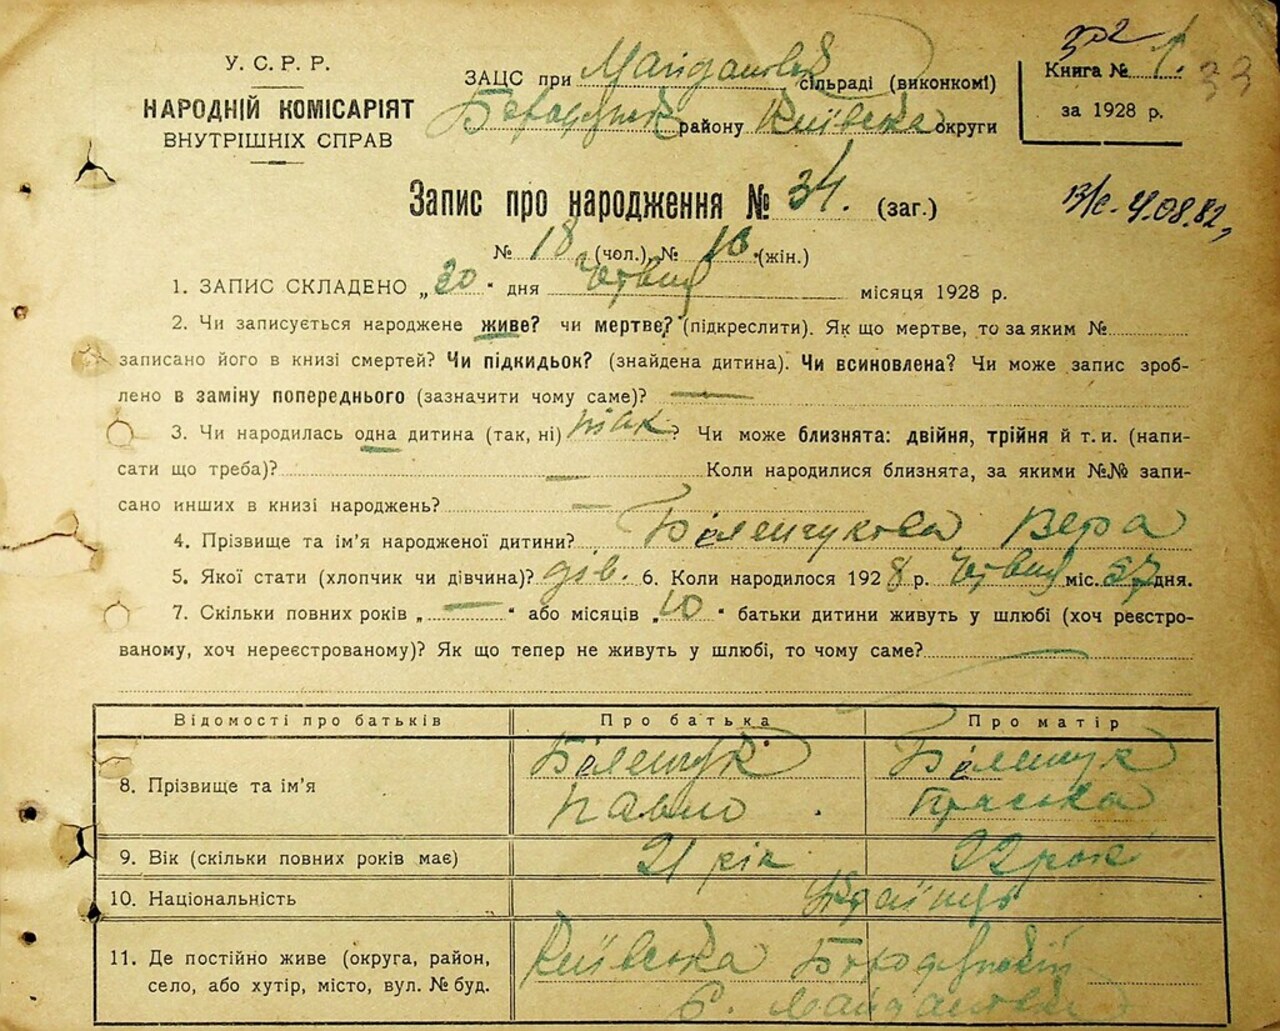 У. С. Р. Р.
НАРОДНІЙ КОМІСАРІЯТ
ВНУТРІШНІХ СПРАВ
ЗАЦС при Майданівській сільраді (виконкомі)
Бородянськ району Київська округи
332
Книга № 1.
33
за 1928 р.
Запис про народження № 34. (заг.)
№ 18 (чол.), № 16. (жін.)
1. ЗАПИС СКЛАДЕНО „30" дня Червня місяця 1928 р.
2. Чи записується народжене живе? чи мертве? (підкреслити). Як що мертве, то за яким №
записано його в книзі смертей? Чи підкидьок? (знайдена дитина). Чи всиновлена? Чи може запис зроб-
лено в заміну попереднього (зазначити чому саме)? —
3. Чи народилась одна дитина (так, ні) так? Чи може близнята: двійня, трійня й т. и. (напи-
сати що треба)? — Коли народилися близнята, за якими №№ запи-
сано инших в книзі народжень? —
4. Прізвище та ім'я народженої дитини? Біленчукова Вера
5. Якої стати (хлопчик чи дівчина)? дів. 6. Коли народилося 1928 р. Червня міс. 27 дня.
7. Скільки повних років „—" або місяців „10" батьки дитини живуть у шлюбі (хоч реєстро-
ваному, хоч нереєстрованому)? Як що тепер не живуть у шлюбі, то чому саме? —
Відомості про батьків Про батька Про матір
8. Прізвище та ім'я Біленчук Павло Біленчук Праська
9. Вік (скільки повних років має) 21 рік 22 роки
10. Національність Українці
11. Де постійно живе (округа, район, Київська Бородянський
село, або хутір, місто, вул. № буд. с. Майданівка